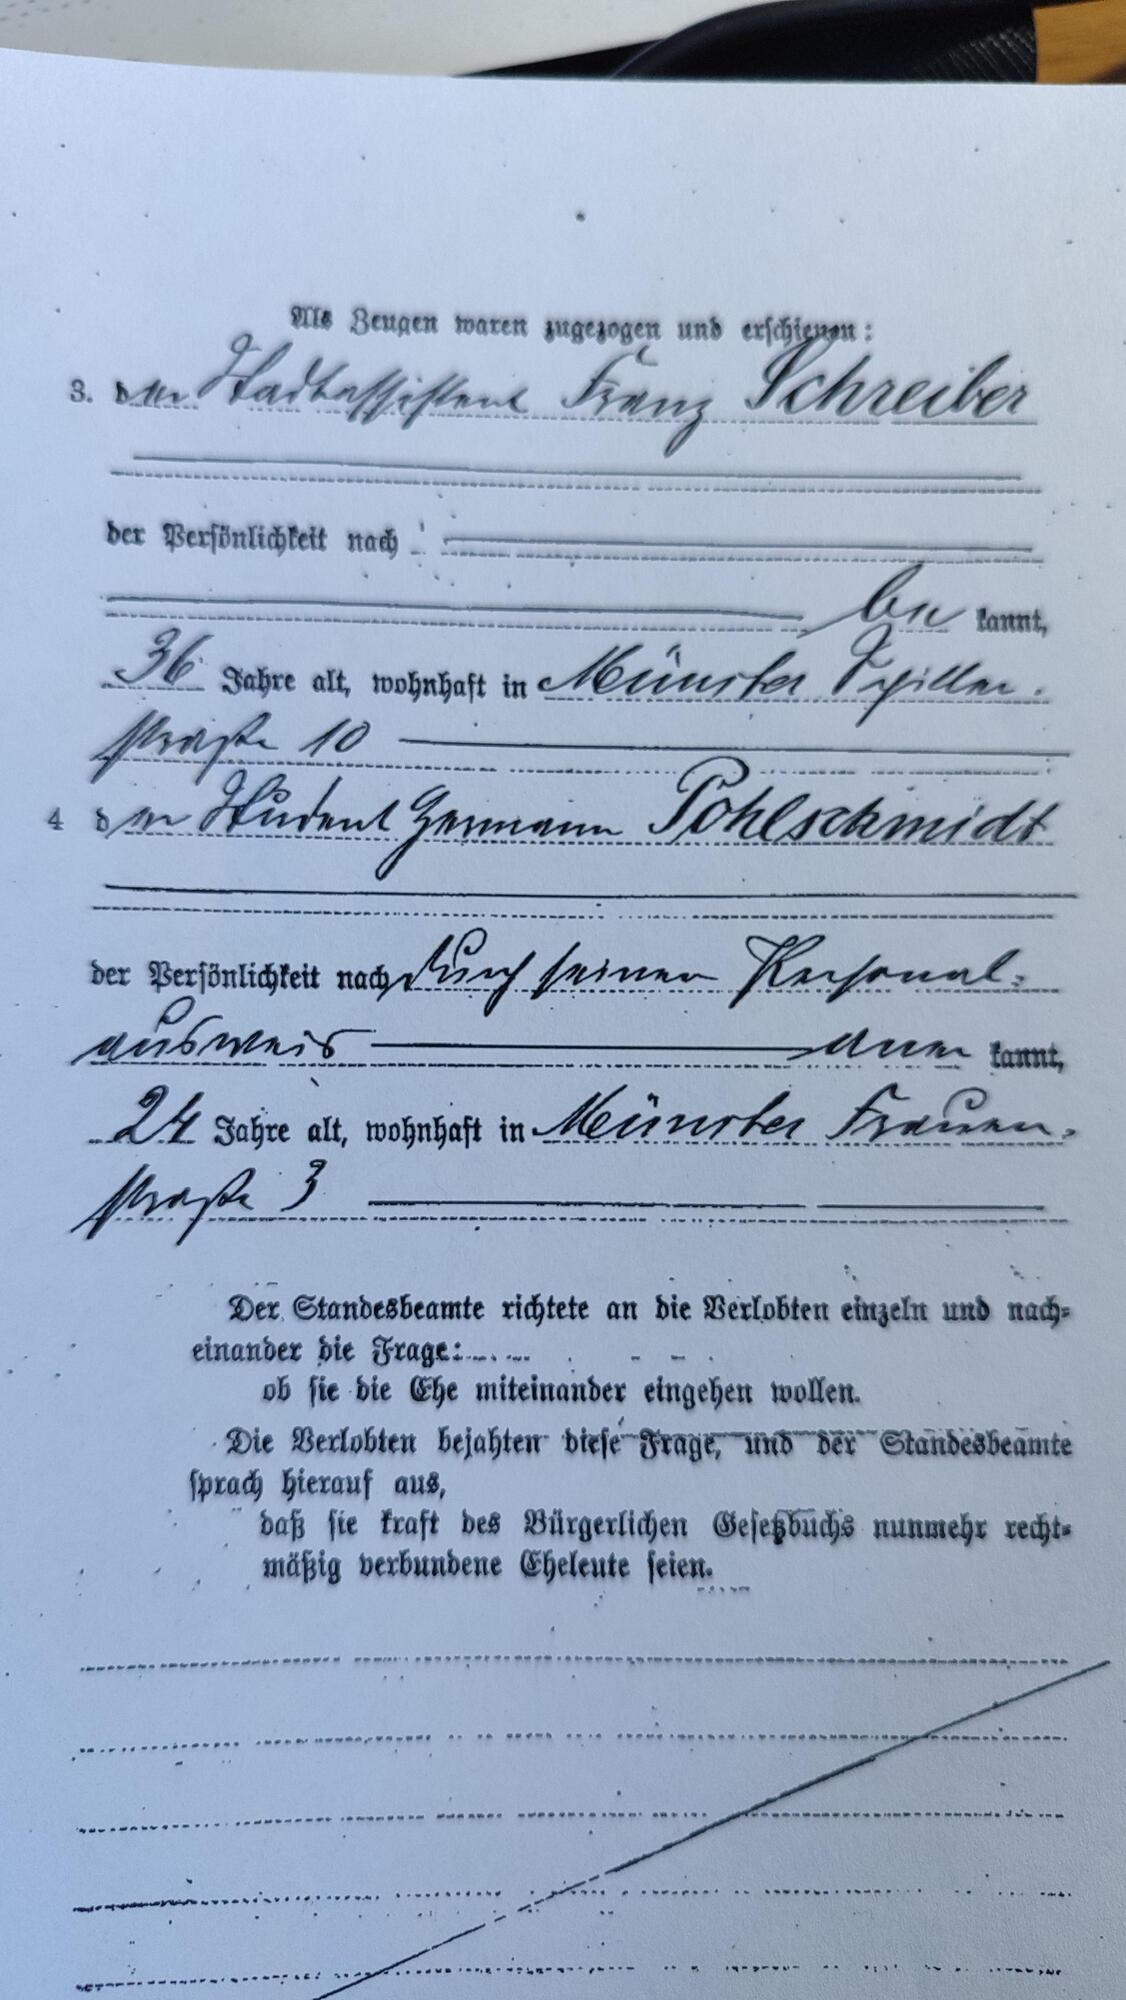 Als Zeugen waren zugezogen und erschienen:
3. der Stadtassistent Franz Schreiber
der Persönlichkeit nach
be kannt,
36 Jahre alt, wohnhaft in Münster Schiller-
straße 10
4 der Student Hermann Pohlschmidt
der Persönlichkeit nach durch seinen Personal-
ausweis aner kannt,
24 Jahre alt, wohnhaft in Münster Frauen-
straße 3
Der Standesbeamte richtete an die Verlobten einzeln und nach-
einander die Frage:
ob sie die Ehe miteinander eingehen wollen.
Die Verlobten bejahten diese Frage, und der Standesbeamte
sprach hierauf aus,
daß sie kraft des Bürgerlichen Gesetzbuchs nunmehr recht-
mäßig verbundene Eheleute seien.